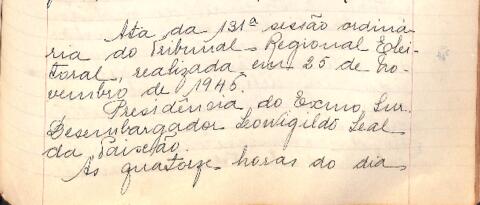 Ata da 131ª sessão ordiná-
ria do Tribunal Regional Elei-
toral, realizada em 25 de no-
vembro de 1945.
Presidência do Exmo. Snr.
Desembargador Leovigildo Leal
da Paixão.
Às quatorze horas do dia